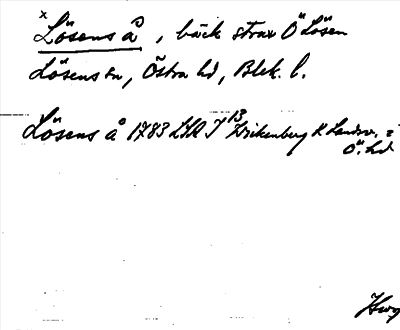 x Lösens å, bäck strax Ö Lösen
Lösens sn, Östra hd, Blek. l.
Lösens å 1783 LSA I 13 Wikenberg K Landsv. i
Ö. hd